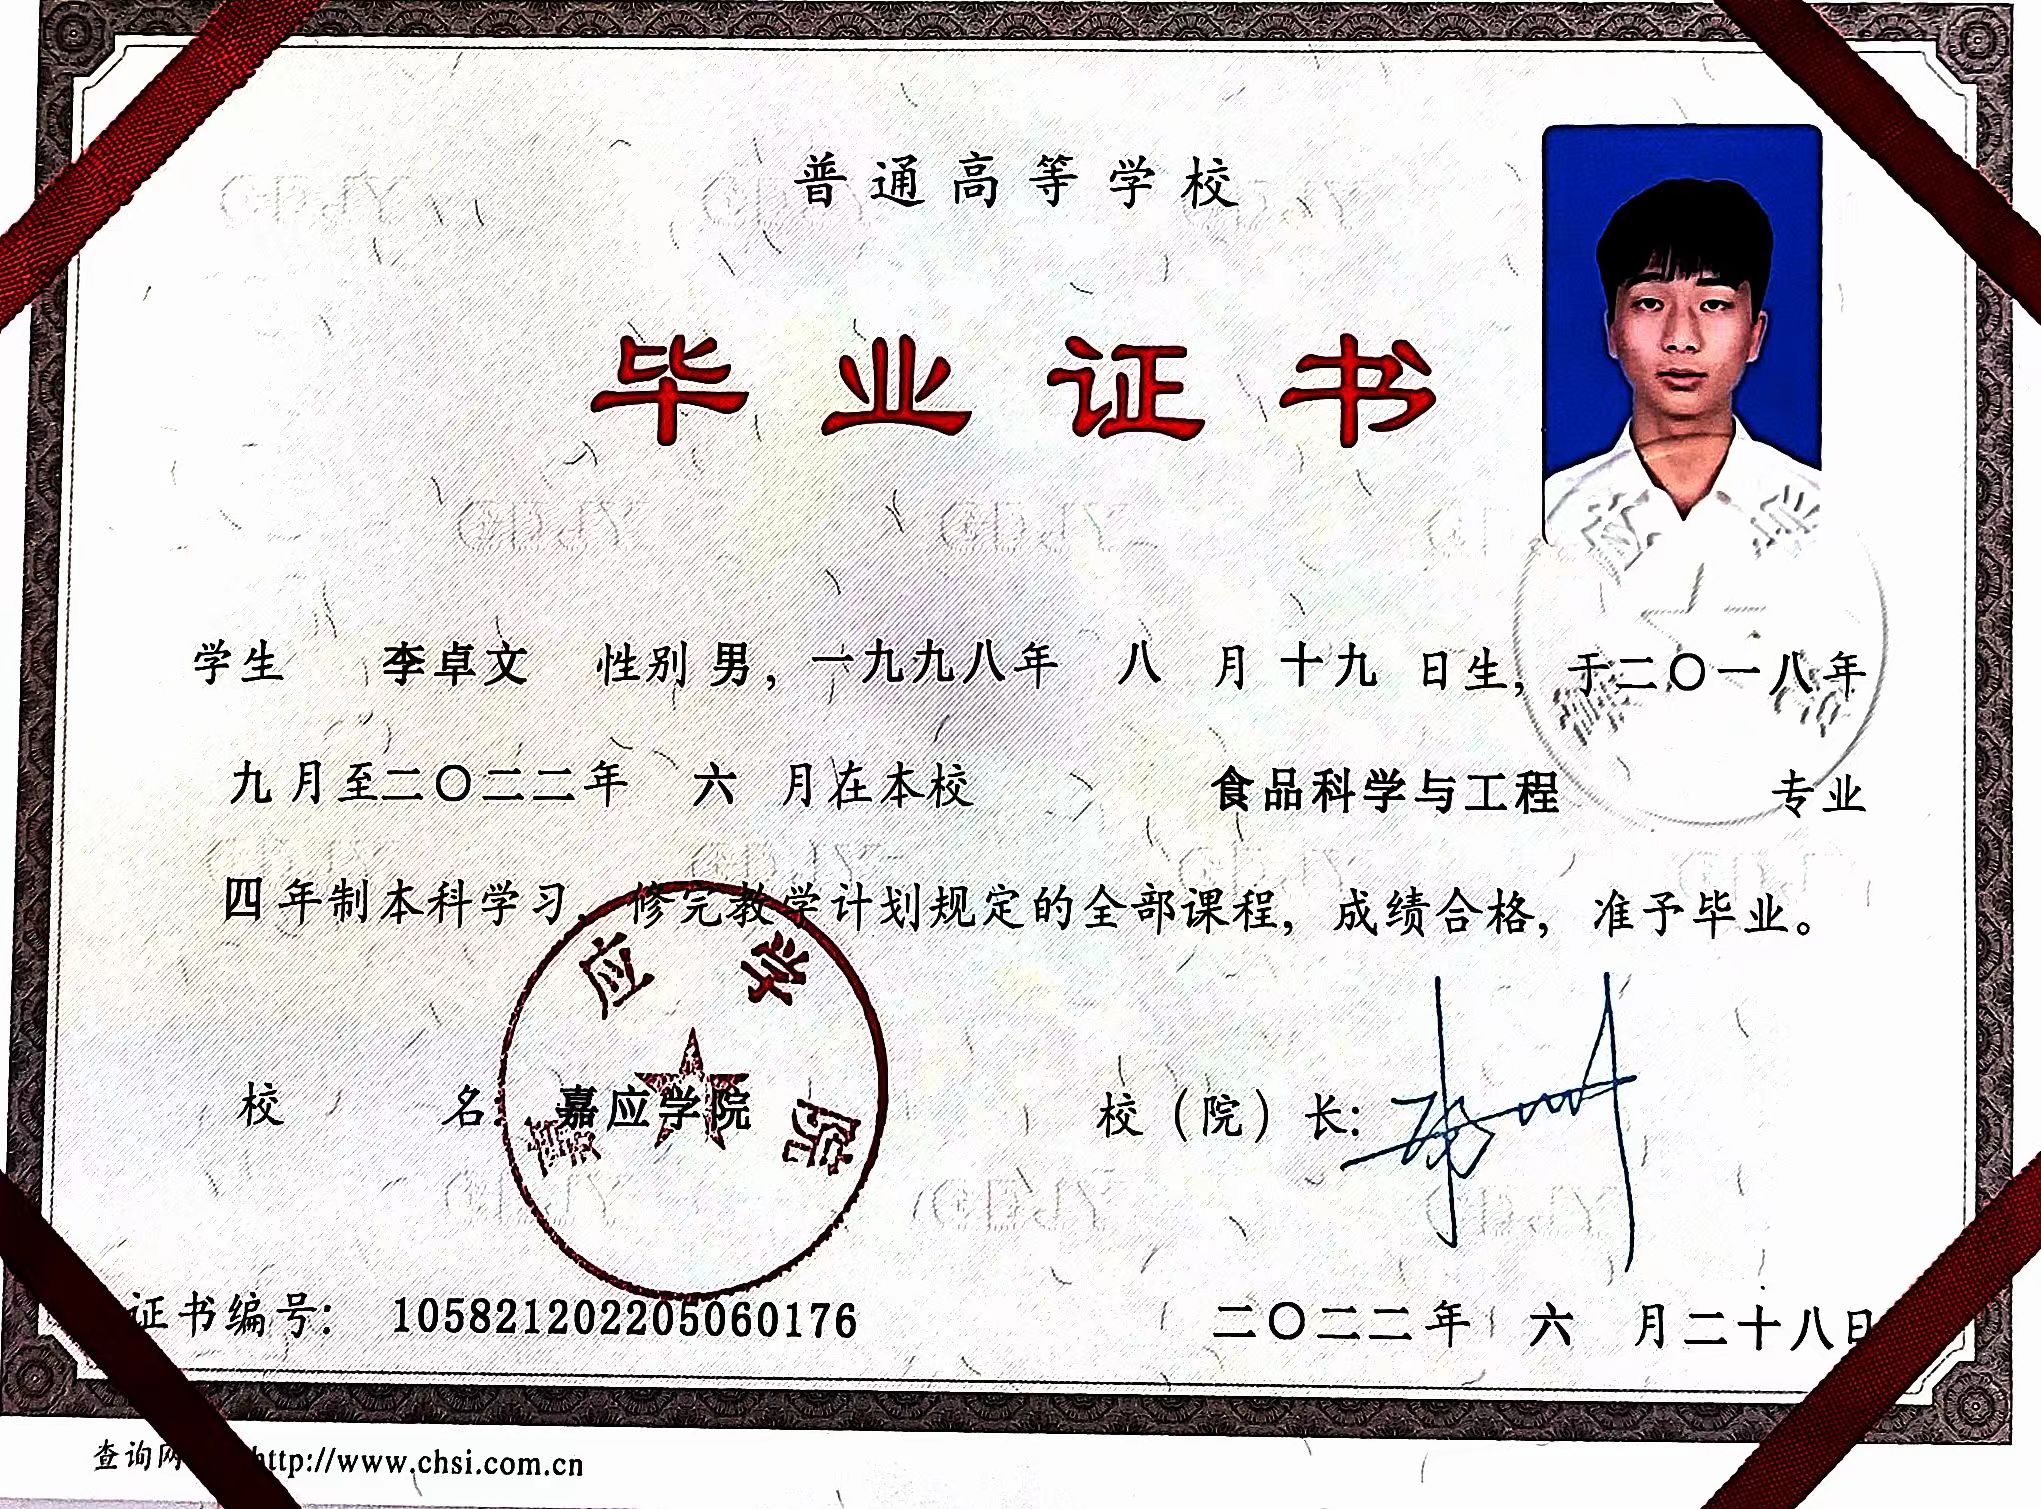 普通高等学校
毕业证书
学生 李卓文 性别 男，一九九八年 八 月 十九 日生，于二〇一八年
九月至二〇二二年 六 月在本校 食品科学与工程 专业
四年制本科学习，修完教学计划规定的全部课程，成绩合格，准予毕业。
嘉应学院
校 名：嘉应学院 校（院）长：
证书编号：105821202205060176 二〇二二年 六 月二十八日
查询网 http://www.chsi.com.cn